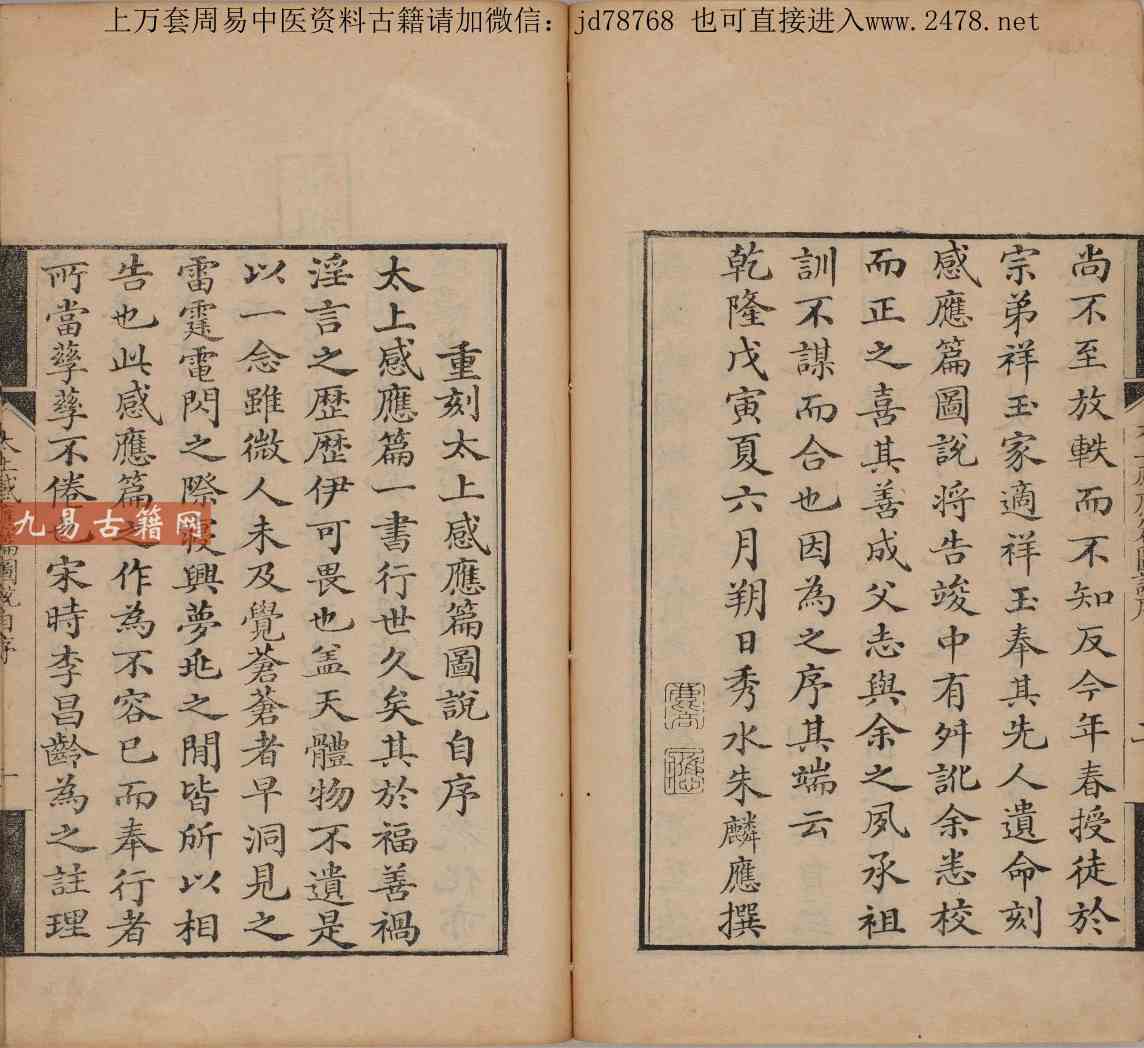 上万套周易中医资料古籍请加微信：jd78768 也可直接进入www.2478.net
尚不至放軼而不知反今年春授徒於
宗弟祥玉家適祥玉奉其先人遺命刻
感應篇圖說将告竣中有舛訛余悉校
而正之喜其善成父志與余之夙承祖
訓不謀而合也因為之序其端云
乾隆戊寅夏六月朔日秀水朱麟應撰
重刻太上感應篇圖說自序
太上感應篇一書行世久矣其於福善禍
淫言之歷歷伊可畏也盖天體物不遺是
以一念雖微人未及覺蒼蒼者早洞見之
雷霆電閃之際寢興夢寐之間皆所以相
告也此感應篇之作為不容已而奉行者
所當孳孳不倦也宋時李昌齡為之註理
九易古籍网